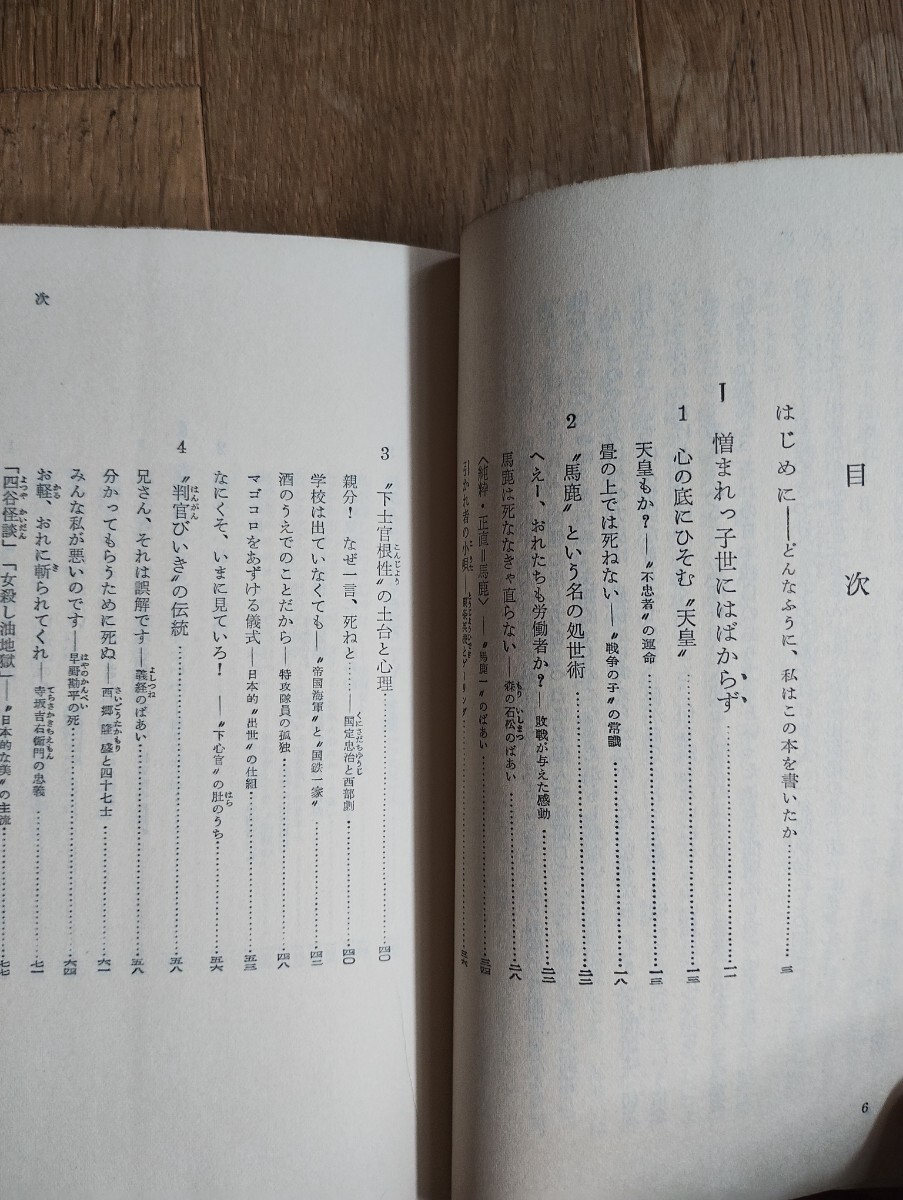 目次
はじめに――どんなふうに、私はこの本を書いたか……三
Ⅰ 憎まれっ子世にはばからず……一一
1 心の底にひそむ〝天皇〟……一三
天皇もか？――〝不忠者〟の運命……一三
畳の上では死ねない――〝戦争の子〟の常識……一八
2 〝馬鹿〟という名の処世術……二三
へえー、おれたちも労働者か？――敗戦が与えた感動……二三
馬鹿は死ななきゃ直らない――森の石松のばあい……二八
〈純粋・正直＝馬鹿〉――〝馬鹿一〟のばあい……三四
引かれ者の小唄
6
次
3 〝下士官根性〟の土台と心理……四〇
親分！ なぜ一言、死ねと……――国定忠治と西部劇……四〇
学校は出ていなくても――〝帝国海軍〟と〝国鉄一家〟……四二
酒のうえでのことだから――特攻隊員の孤独……四八
マゴコロをあずける儀式――日本的〝出世〟の仕組……五三
なにくそ、いまに見ていろ！――〝下心官〟の肚のうち……五六
4 〝判官びいき〟の伝統……五八
兄さん、それは誤解です――義経のばあい……五八
分かってもらうために死ぬ――西郷隆盛と四十七士……六一
みんな私が悪いのです――早野勘平の死……六四
お軽、おれに斬られてくれ――寺坂吉右衛門の忠義……七一
「四谷怪談」「女殺し油地獄」――〝日本的な美〟の主流……七七